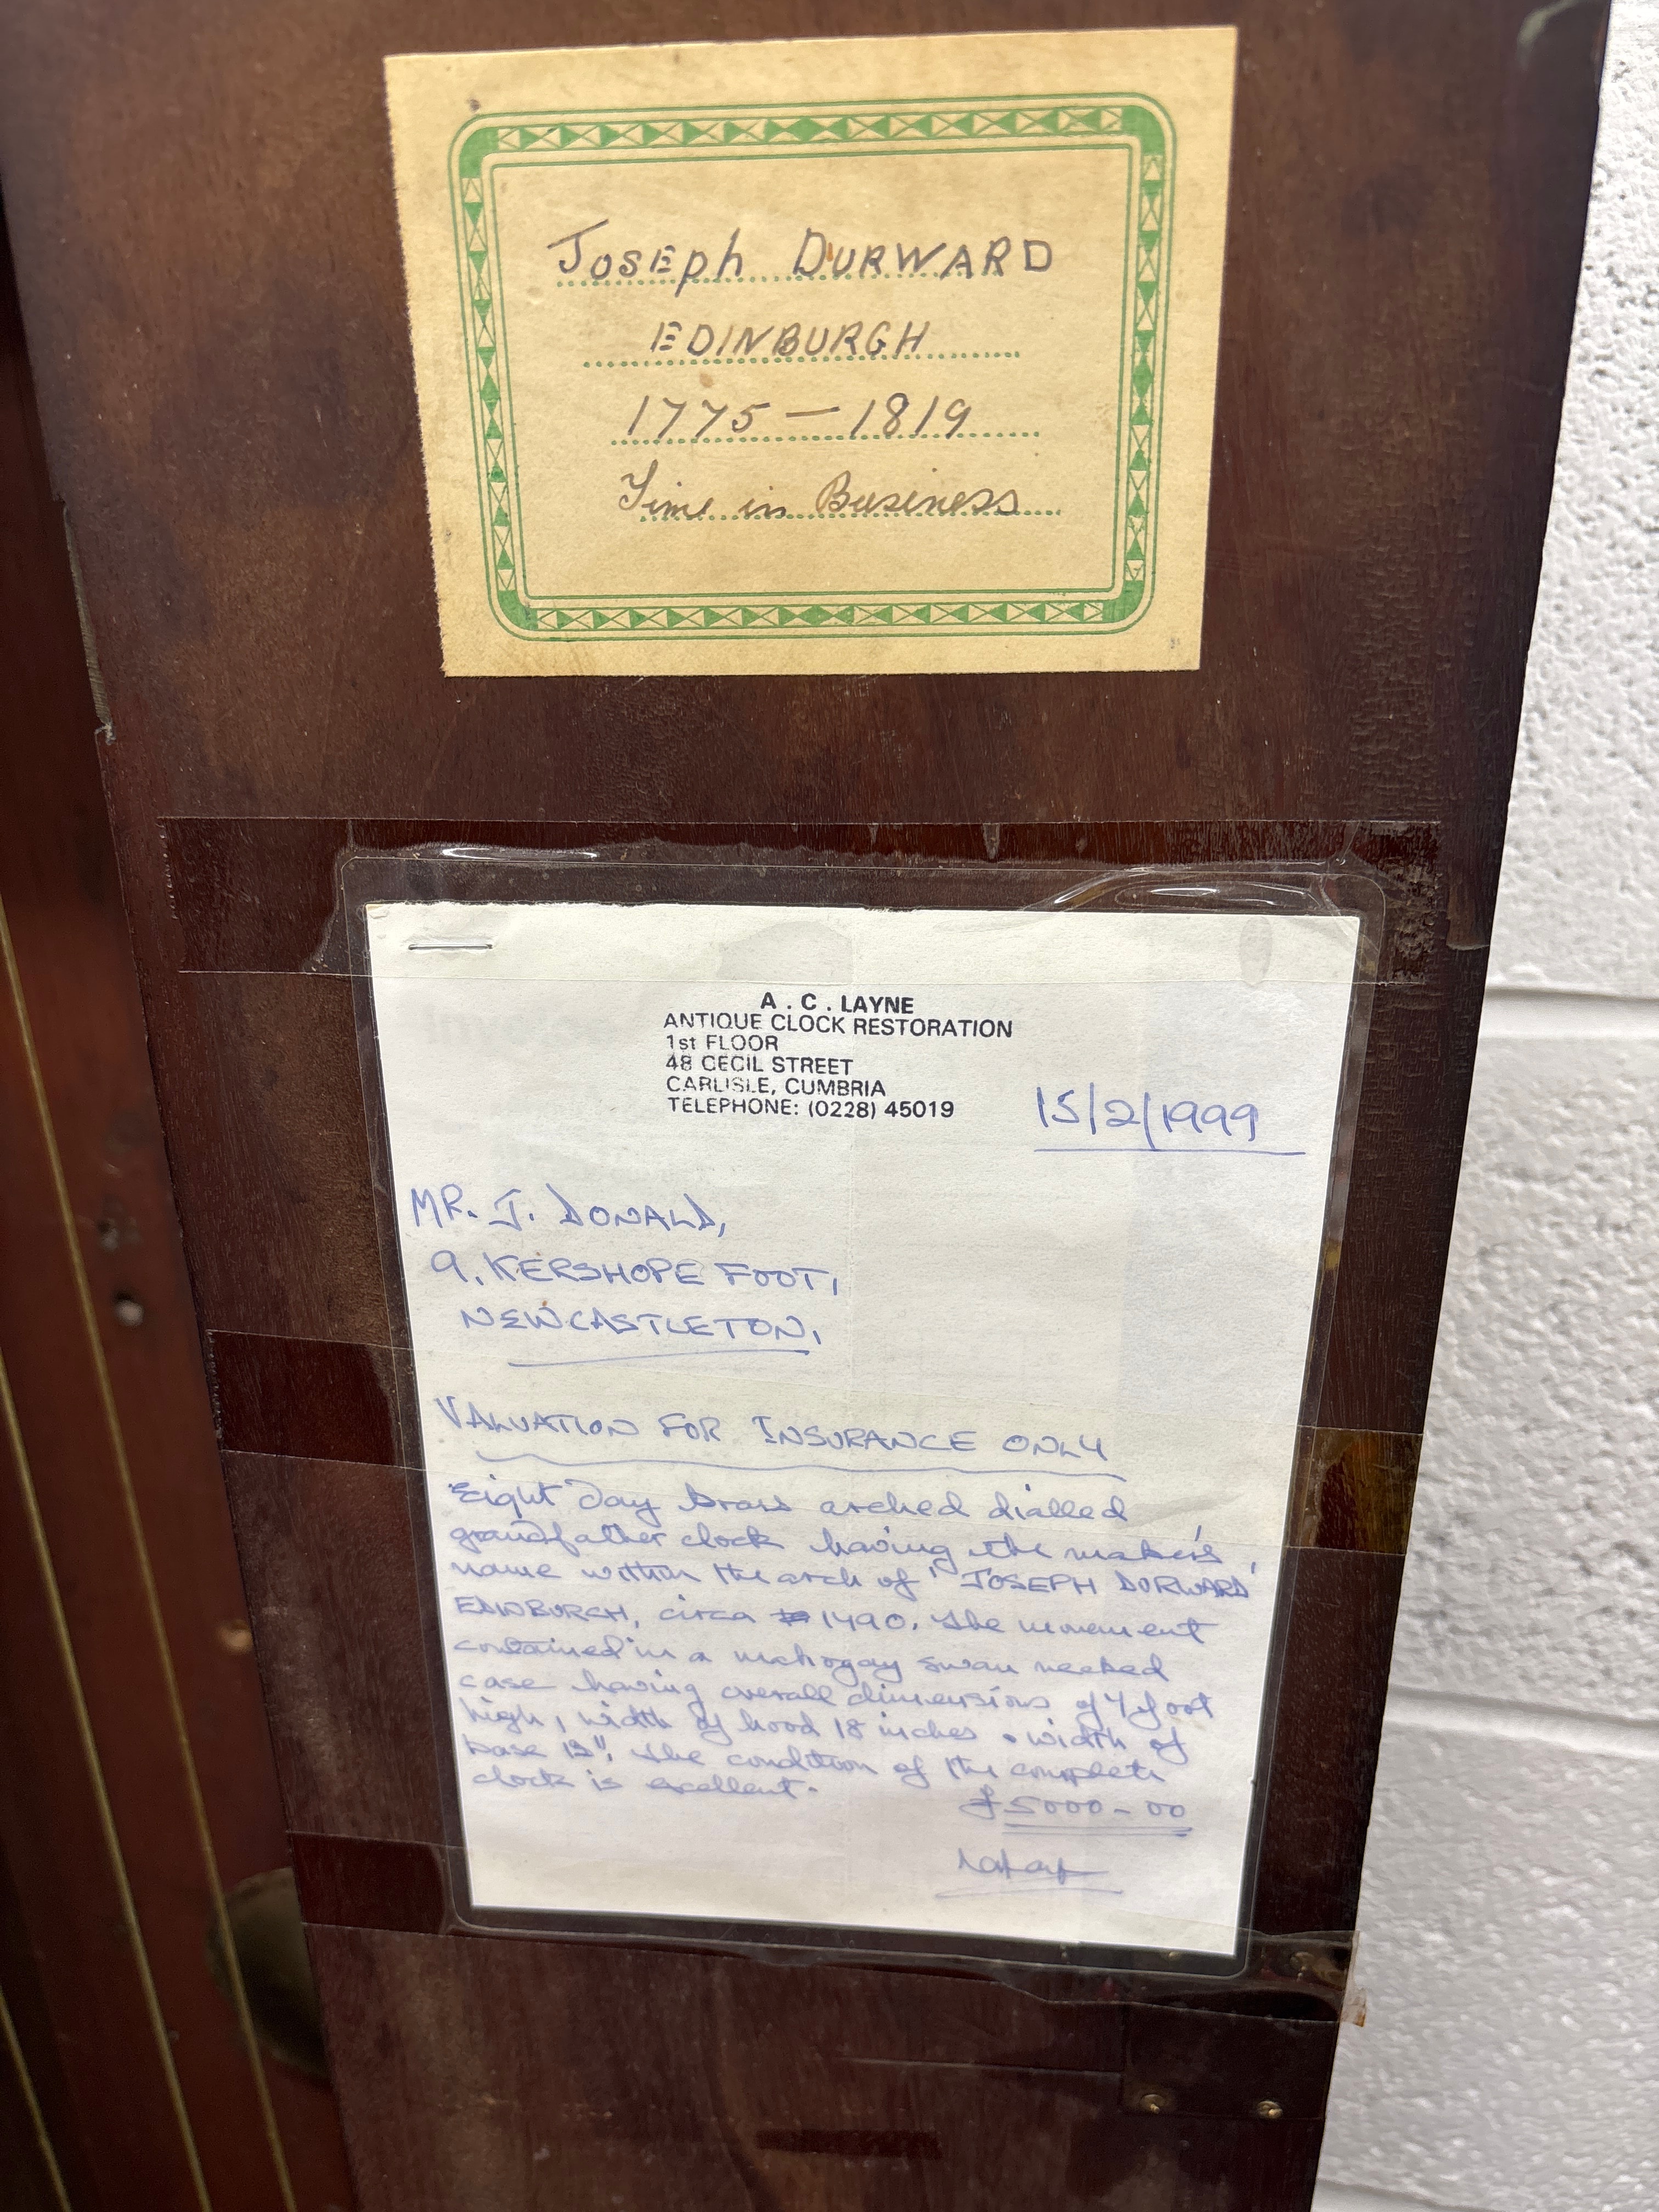 Joseph DURWARD
EDINBURGH
1775 — 1819
Time in Business
A . C . LAYNE
ANTIQUE CLOCK RESTORATION
1st FLOOR
48 CECIL STREET
CARLISLE, CUMBRIA
TELEPHONE: (0228) 45019
15/2/1999
MR. J. DONALD,
9, KERSHOPE FOOT,
NEWCASTLETON,
VALUATION FOR INSURANCE ONLY
Eight day brass arched dialled
grandfather clock having the maker's
name within the arch of "JOSEPH DURWARD"
EDINBURGH, circa 1790. The movement
contained in a mahogay swan necked
case having overall dimensions of 7 foot
high, width of hood 18 inches width of
base The condition of the complete
clock is excellent.
£5000-00